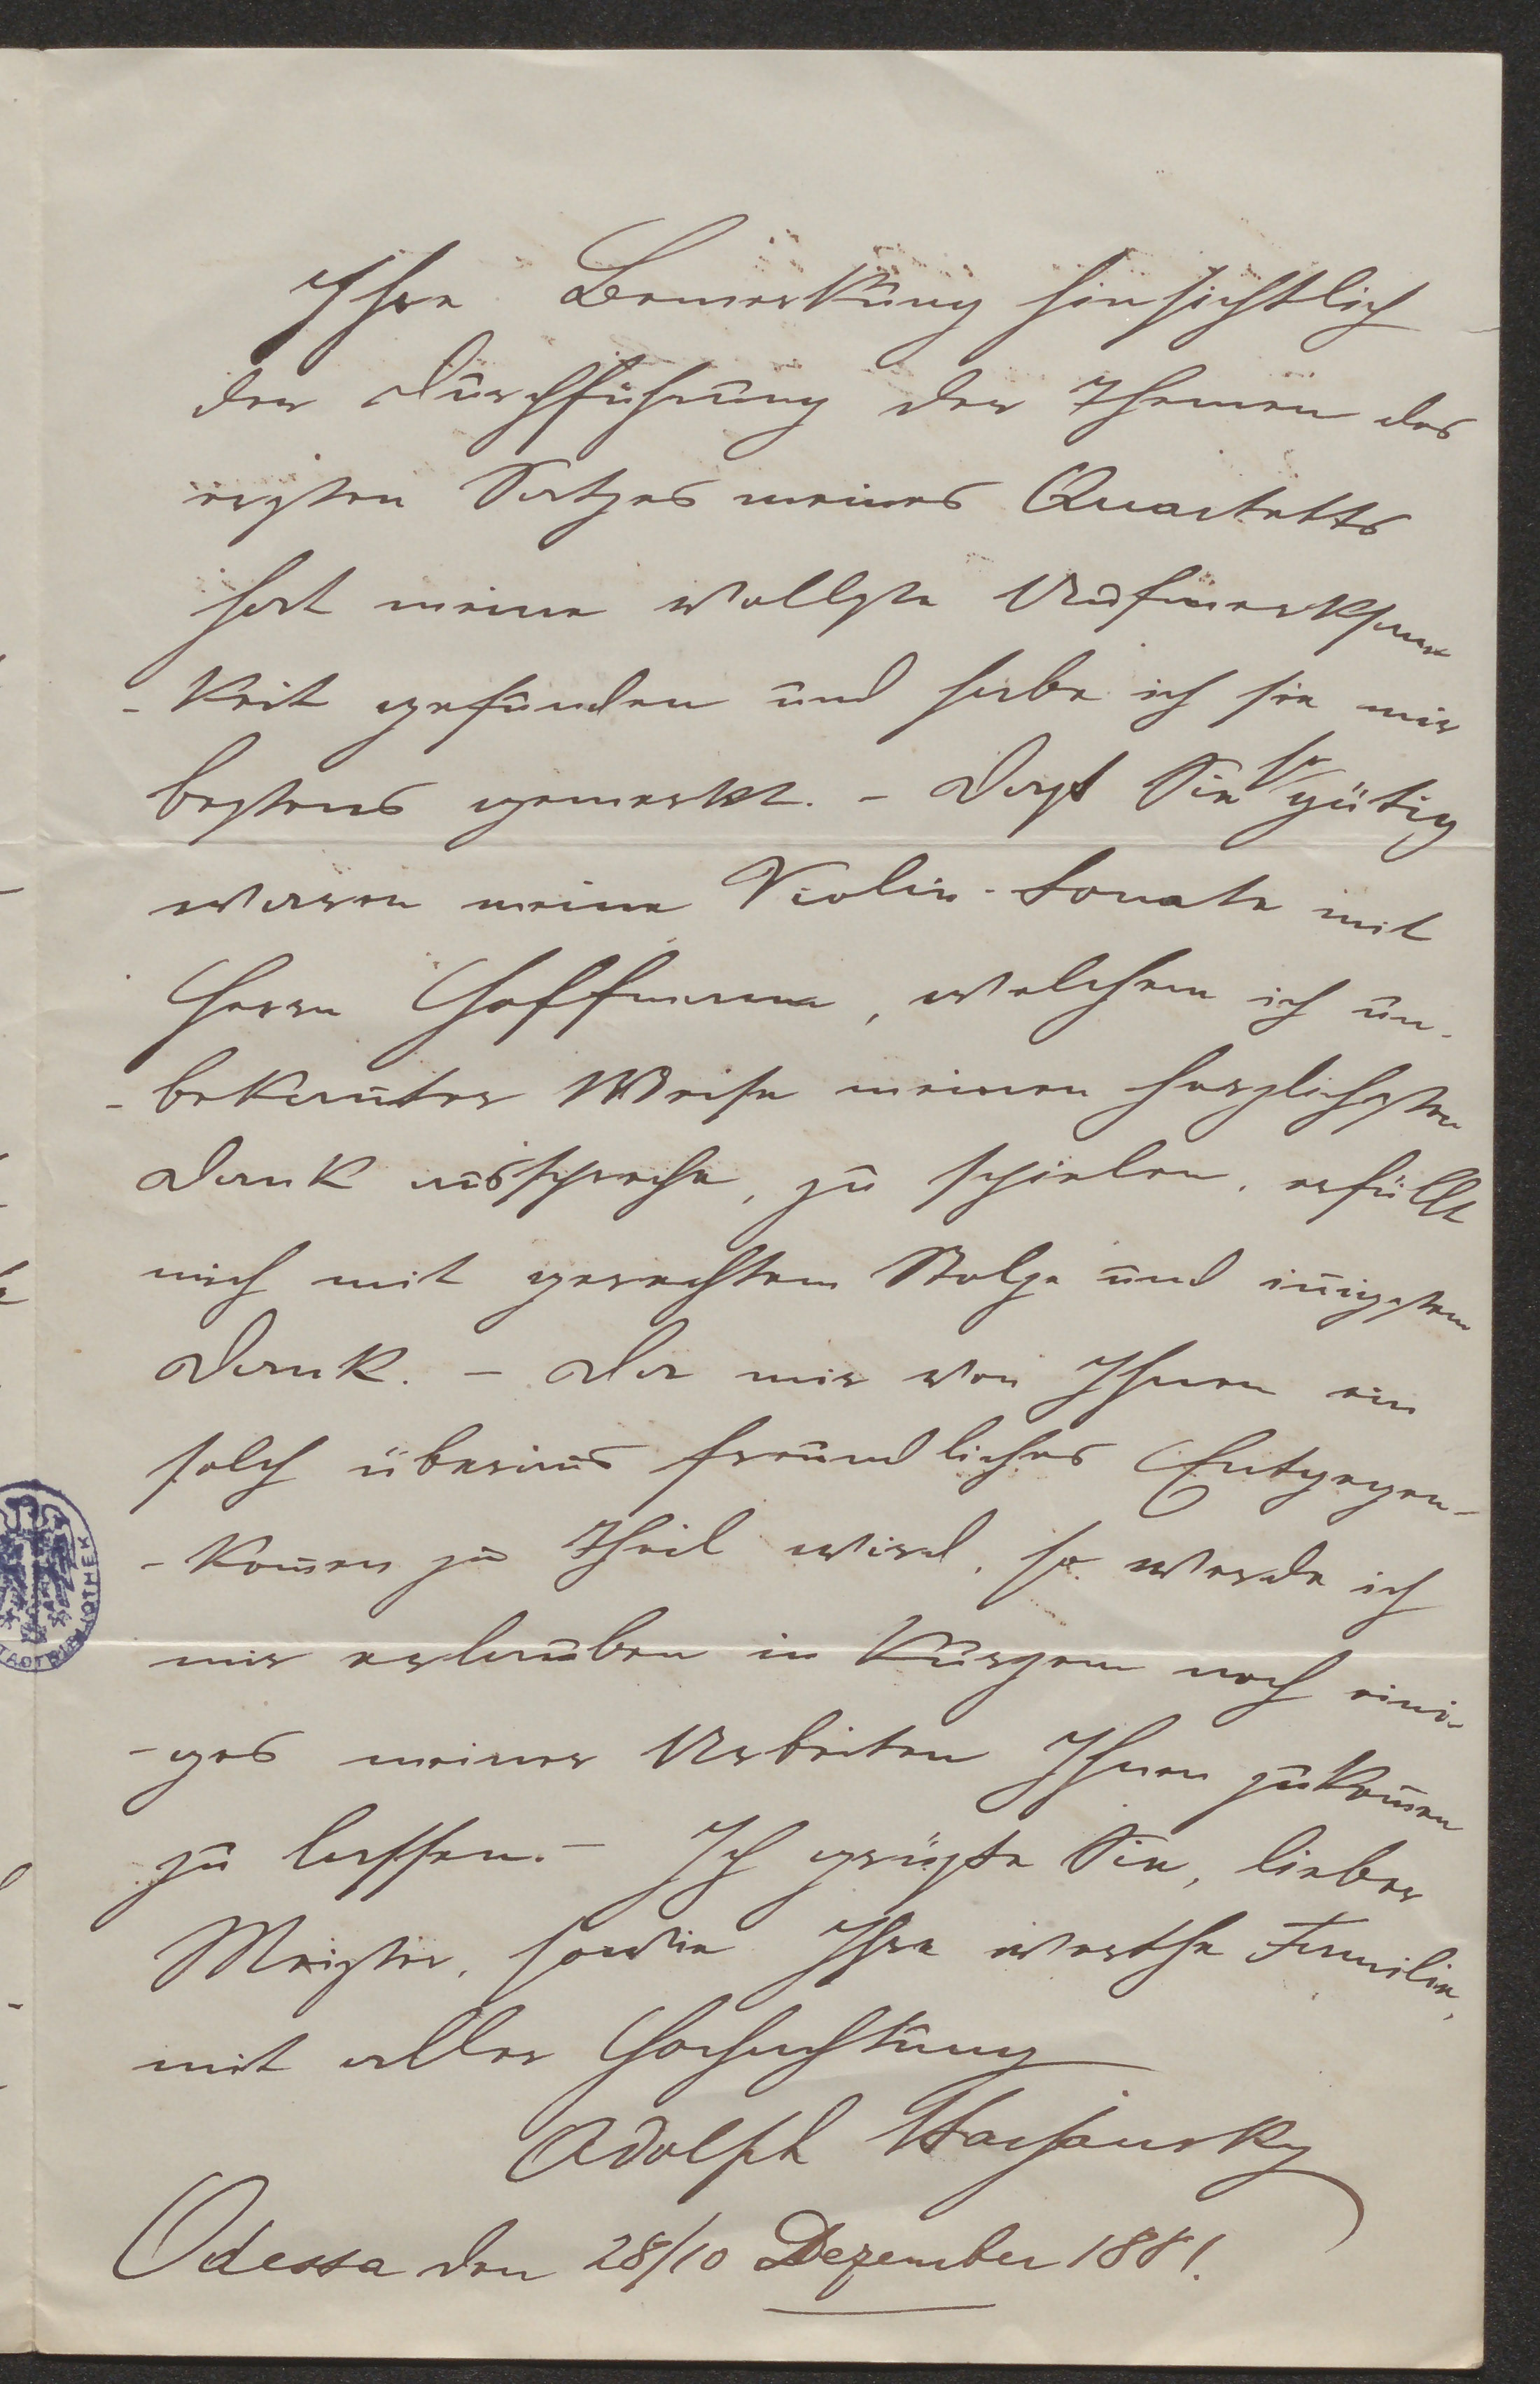 Ihre Bemerkung hinsichtlich
der Durchführung der Themen des
ersten Satzes meines Quartetts
hat meine vollste Aufmerksam
-keit gefunden und habe ich sie mir
bestens gemerkt. – Daß Sie so gütig
waren meine Violin-Sonate mit
Herrn Hoffmann, welchem ich un-
-bekanter Weise meinen herzlichsten
Dank ausspreche, zu spielen, erfüllt
mich mit gerechtem Stolze und inigstem
Dank. – Da mir von Ihnen ein
solch überaus freundliches Entgegen-
-komen zu Theil wird, so werde ich
mir erlauben in Kurzem noch eini-
-ges meiner Arbeiten Ihnen zukomen
zu lassen. – Ich grüße Sie, lieber
Meister, sowie Ihre werthe Familie,
mit aller Hochachtung
Adolph
Odessa den 28/10 Dezember 1881.